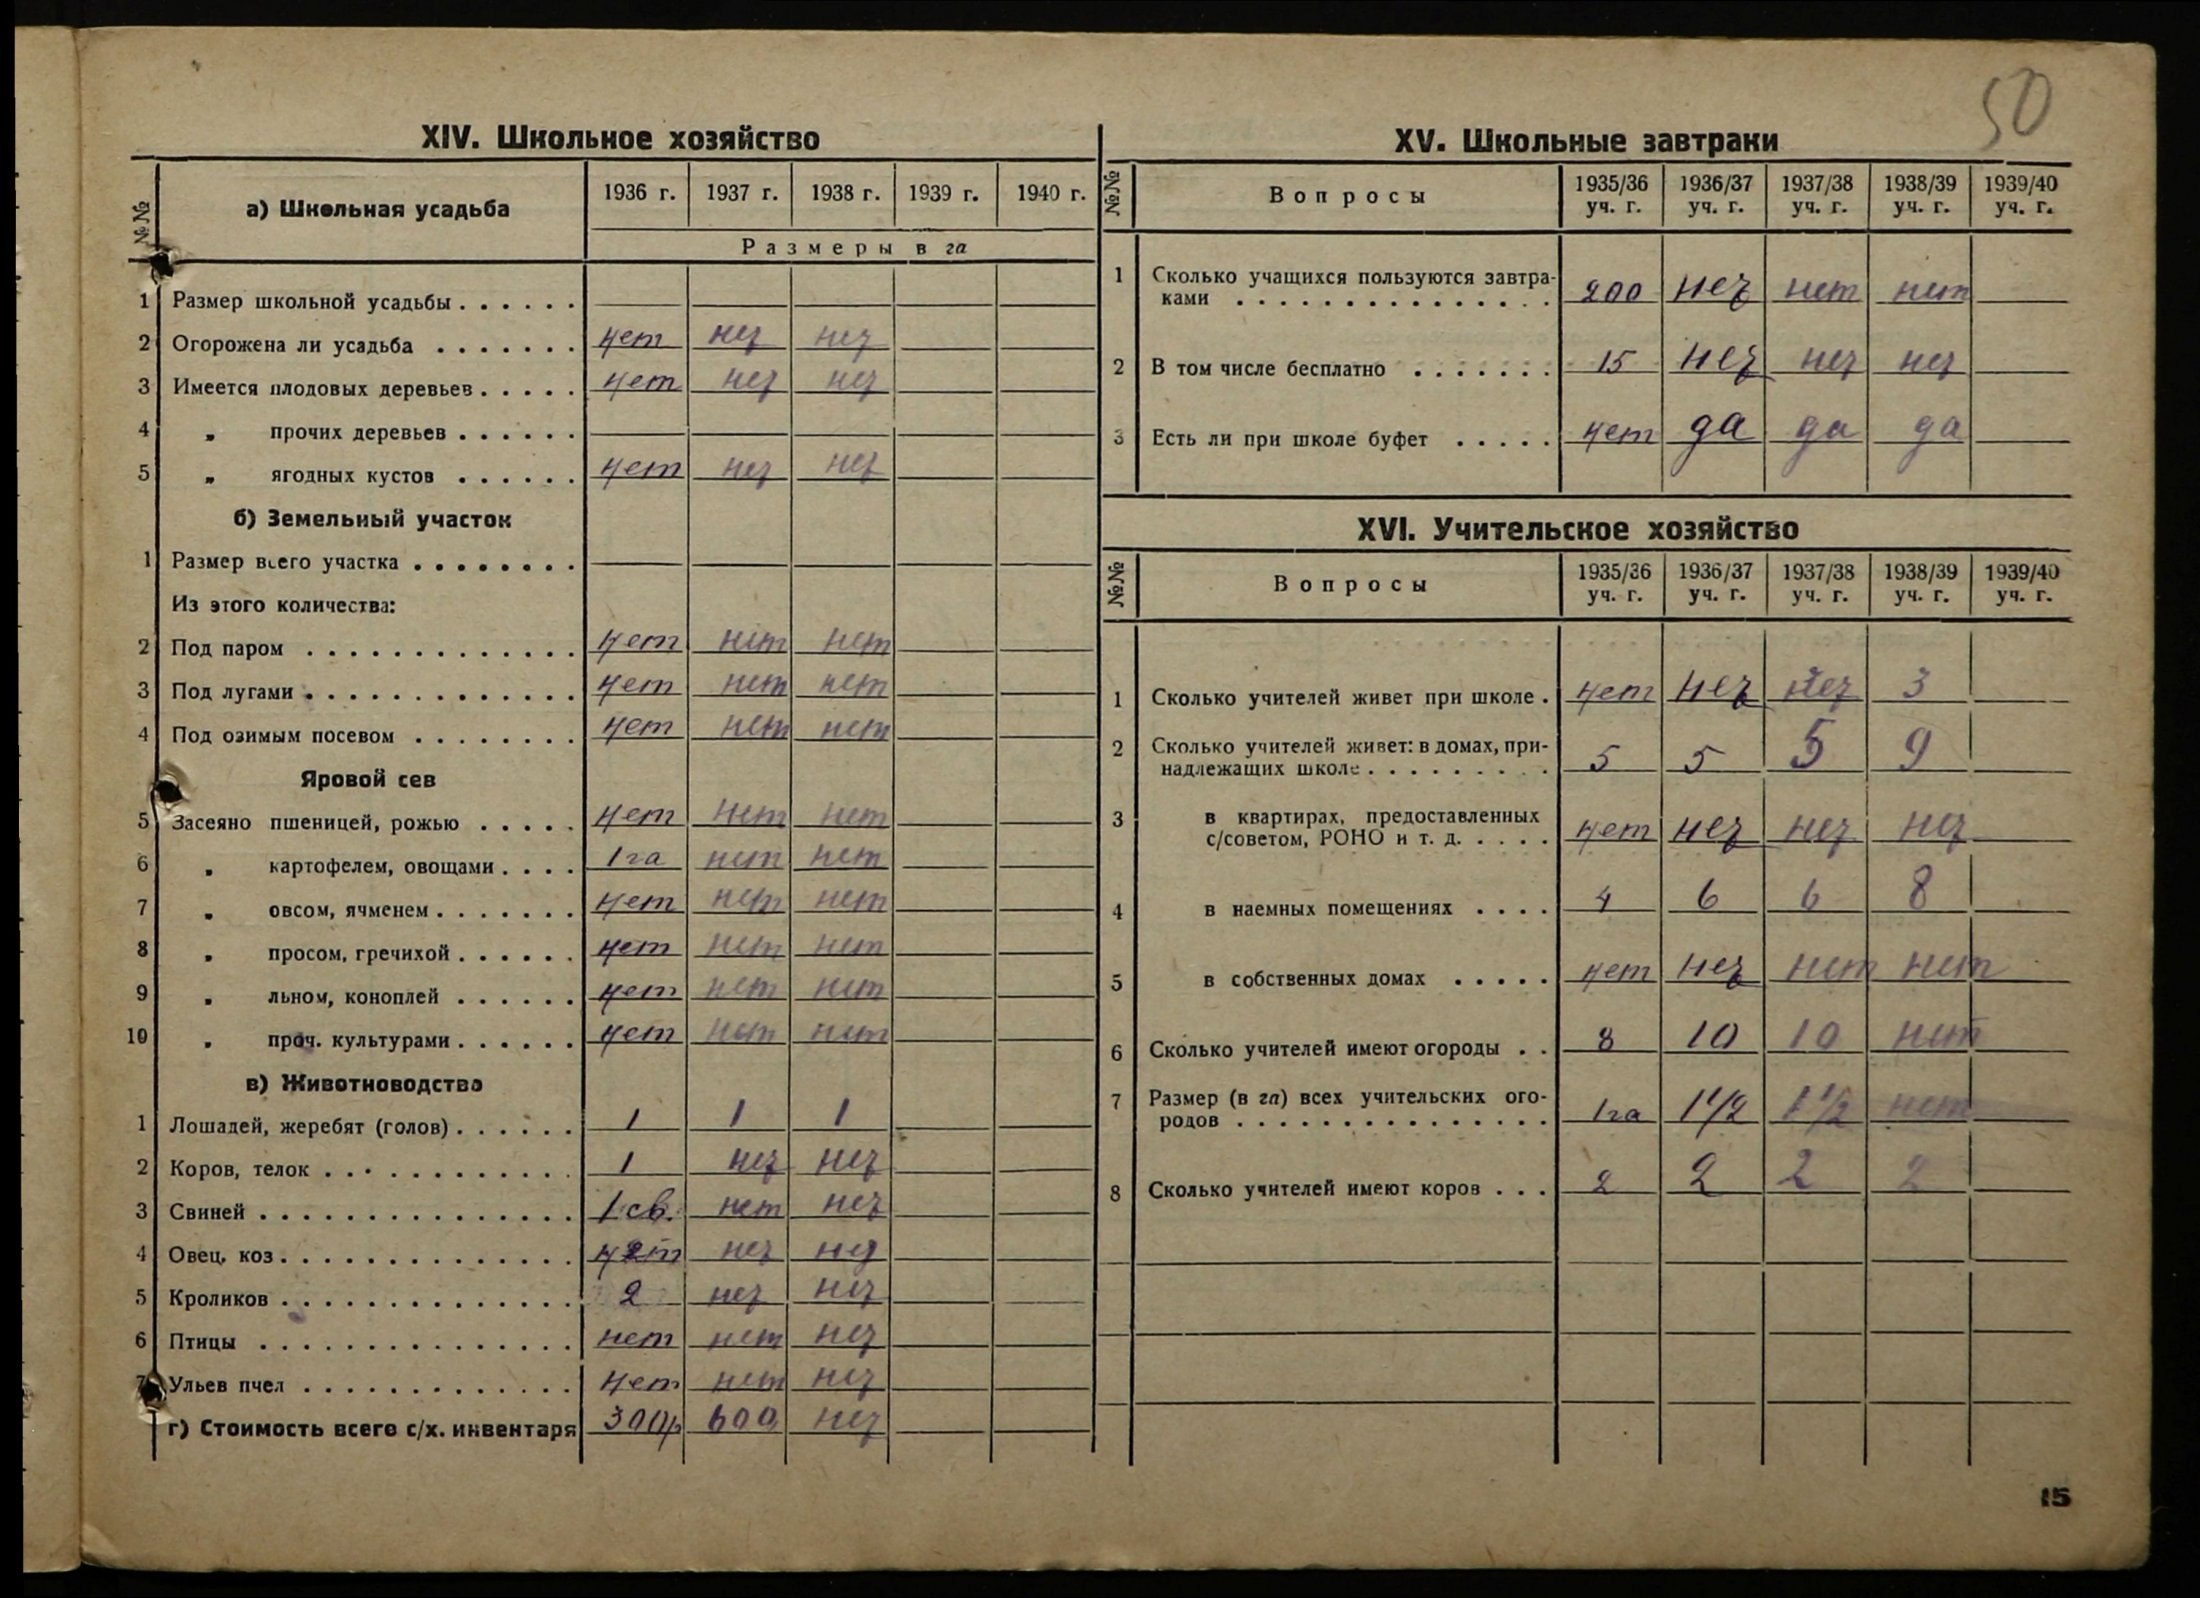 50
XIV. Школьное хозяйство
№№ а) Школьная усадьба 1936 г. 1937 г. 1938 г. 1939 г. 1940 г.
Размеры в га
1 Размер школьной усадьбы . . . . . .
2 Огорожена ли усадьба . . . . . . . нет нет нет
3 Имеется плодовых деревьев . . . . . нет нет нет
4 „ прочих деревьев . . . . . .
5 „ ягодных кустов . . . . . . нет нет нет
б) Земельный участок
1 Размер всего участка . . . . . . . .
Из этого количества:
2 Под паром . . . . . . . . . . . . . нет нет нет
3 Под лугами . . . . . . . . . . . . . нет нет нет
4 Под озимым посевом . . . . . . . . нет нет нет
Яровой сев
5 Засеяно пшеницей, рожью . . . . . нет нет нет
6 „ картофелем, овощами . . . . 1 га нет нет
7 „ овсом, ячменем . . . . . . . нет нет нет
8 „ просом, гречихой . . . . . . нет нет нет
9 „ льном, коноплей . . . . . . нет нет нет
10 „ проч. культурами . . . . . . нет нет нет
в) Животноводство
1 Лошадей, жеребят (голов) . . . . . . 1 1 1
2 Коров, телок . . . . . . . . . . . . 1 нет нет
3 Свиней . . . . . . . . . . . . . . . 1 св. нет нет
4 Овец, коз . . . . . . . . . . . . . . нет нет нет
5 Кроликов . . . . . . . . . . . . . . 2 нет нет
6 Птицы . . . . . . . . . . . . . . . нет нет нет
7 Ульев пчел . . . . . . . . . . . . . нет нет нет
г) Стоимость всего с/х. инвентаря 300р 600 нет
XV. Школьные завтраки
№№ Вопросы 1935/36 уч. г. 1936/37 уч. г. 1937/38 уч. г. 1938/39 уч. г. 1939/40 уч. г.
1 Сколько учащихся пользуются завтра-
ками . . . . . . . . . . . . . . . 200 нет нет нет
2 В том числе бесплатно . . . . . . . 15 нет нет нет
3 Есть ли при школе буфет . . . . . нет да да да
XVI. Учительское хозяйство
№№ Вопросы 1935/36 уч. г. 1936/37 уч. г. 1937/38 уч. г. 1938/39 уч. г. 1939/40 уч. г.
1 Сколько учителей живет при школе . нет нет нет 3
2 Сколько учителей живет: в домах, при-
надлежащих школе . . . . . . . . . 5 5 5 9
3 в квартирах, предоставленных
с/советом, РОНО и т. д. . . . . нет нет нет нет
4 в наемных помещениях . . . . 4 6 6 8
5 в собственных домах . . . . . нет нет нет нет
6 Сколько учителей имеют огороды . . 8 10 10 нет
7 Размер (в га) всех учительских ого-
родов . . . . . . . . . . . . . . . 1 га 1 1/2 1 1/2 нет
8 Сколько учителей имеют коров . . . 2 2 2 2
15